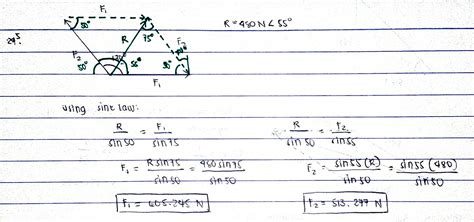 F₁
R = 480 N ∠ 55°
50°
75°
R
F₂
F₂
50°
55°
50°
F₁
using sine law:
R/sin 50 = F₁/sin 75
R/sin 50 = F₂/sin 55
F₁ = R sin 75/sin 50 = 480 sin 75/sin 50
F₂ = sin 55 (R)/sin 50 = sin 55 (480)/sin 50
F₁ = 605.245 N
F₂ = 513.277 N